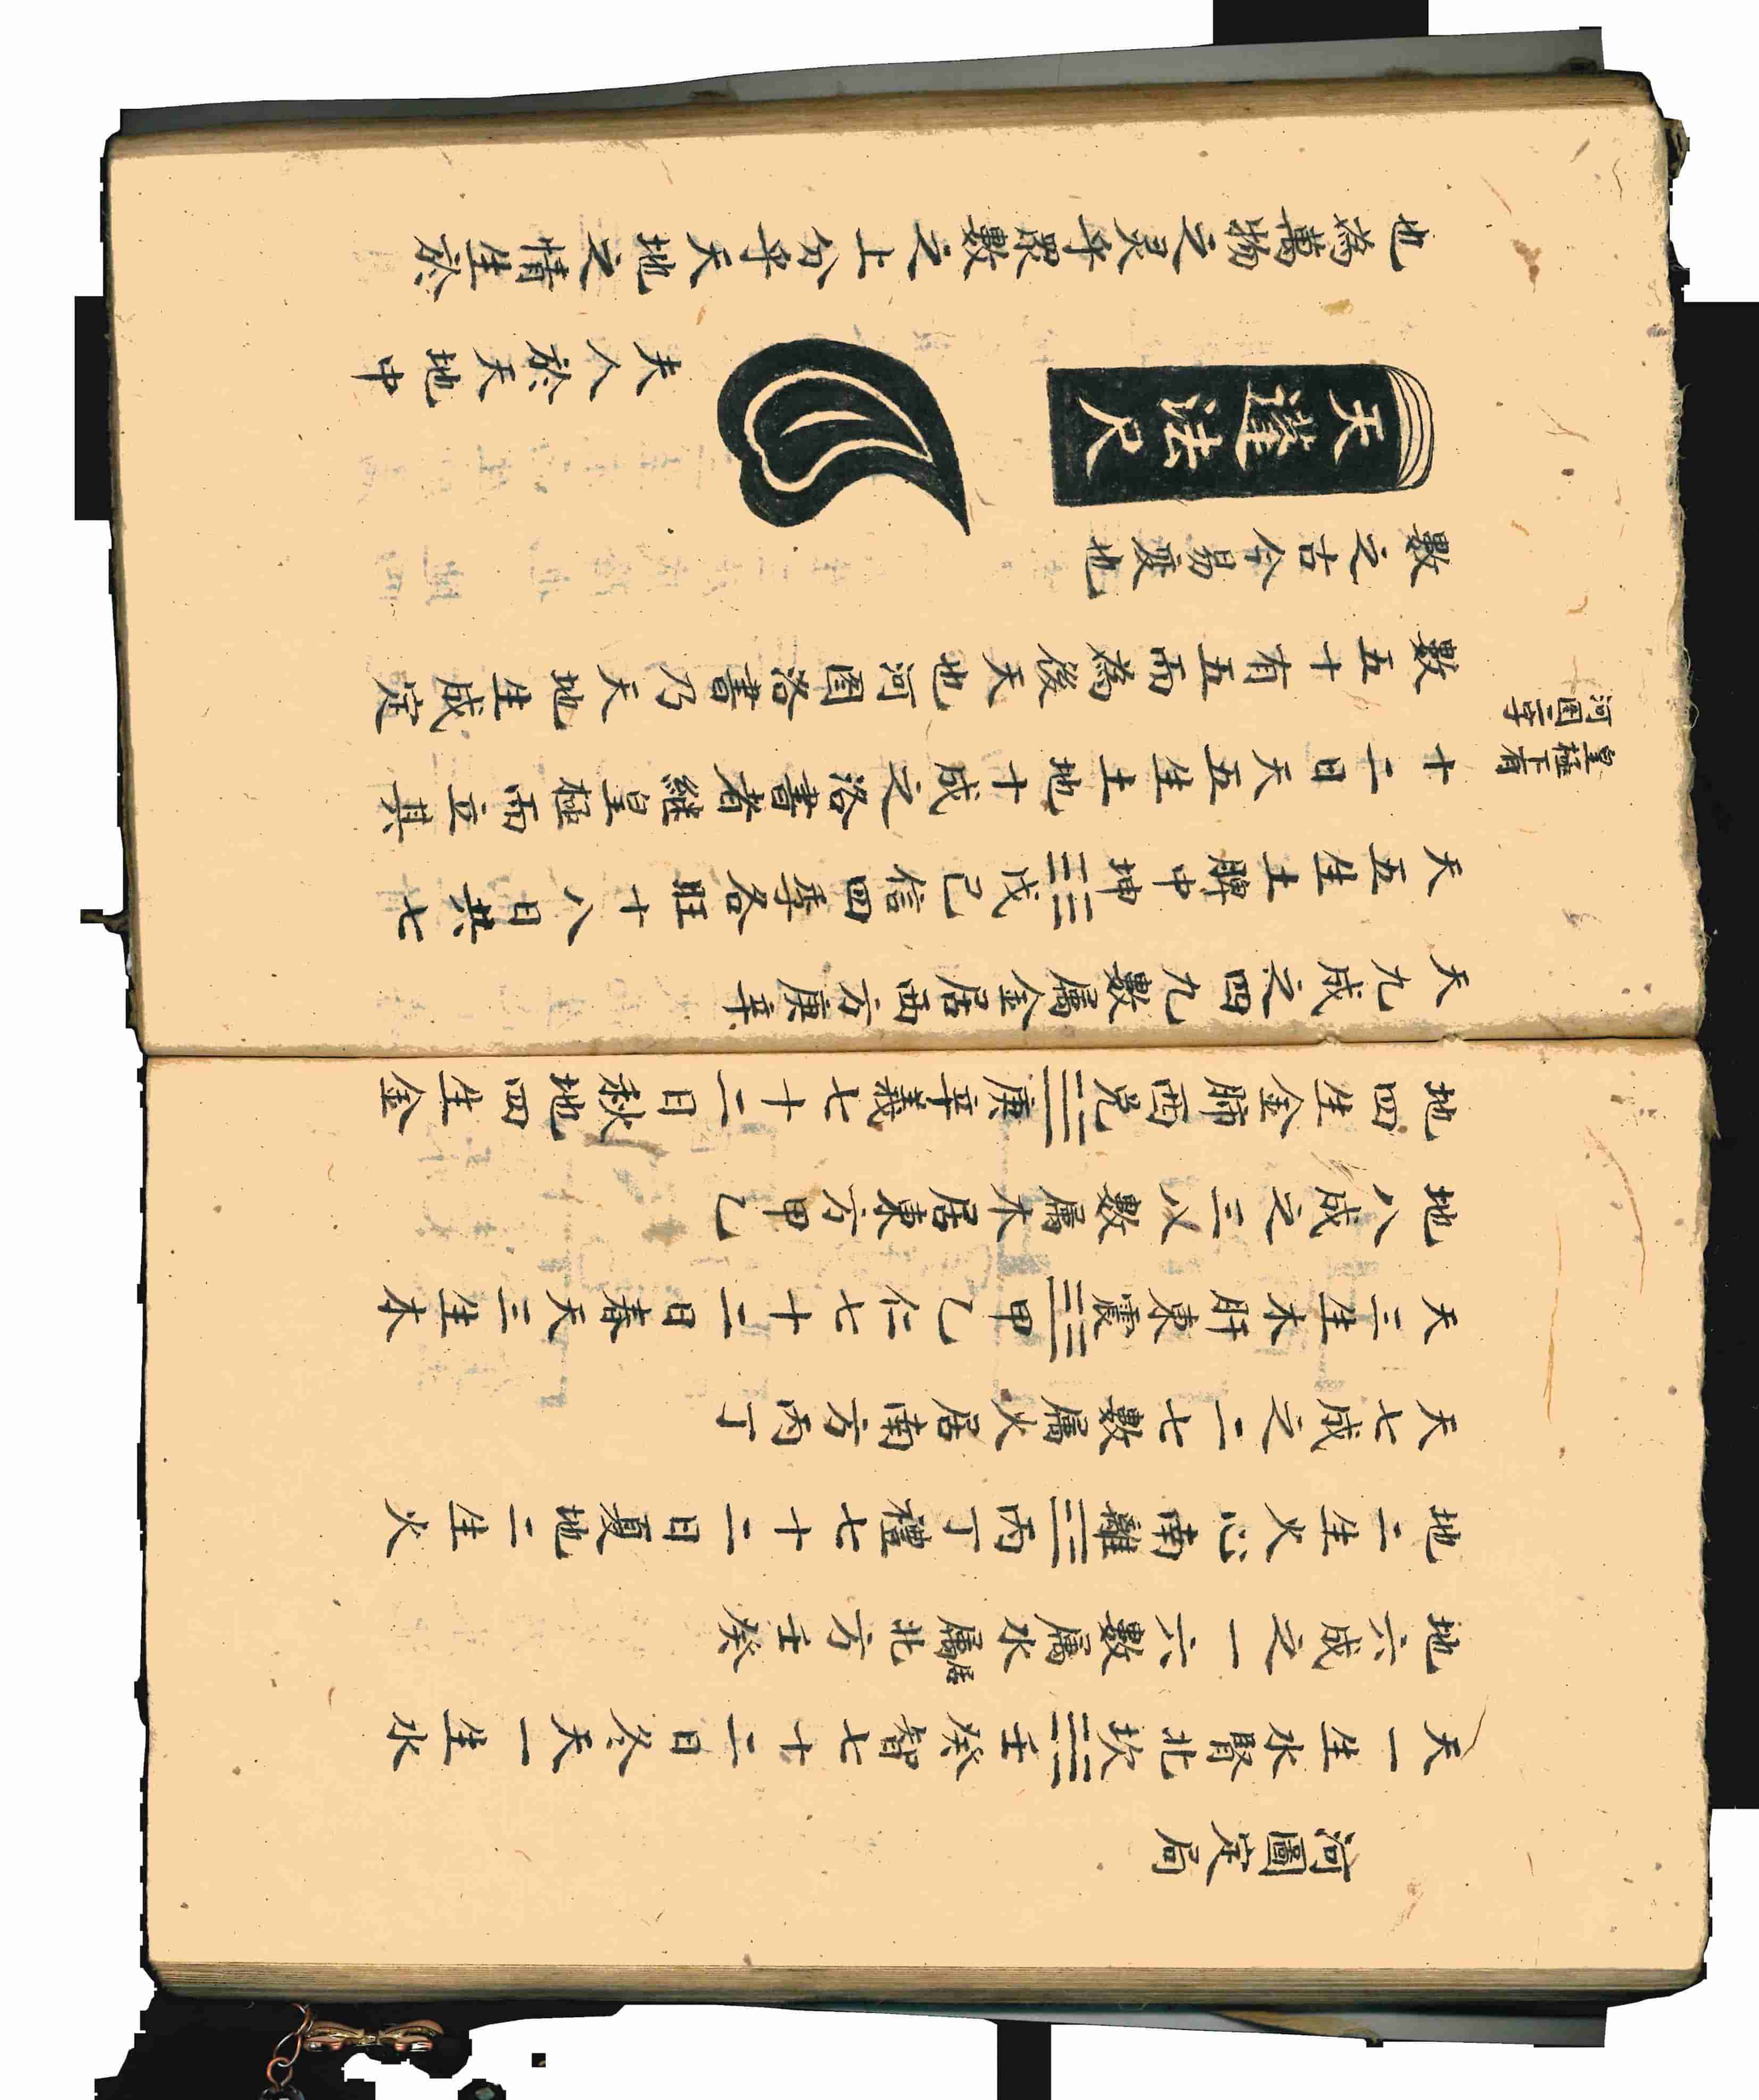 河圖定局
天一生水腎北坎☵壬癸智七十二日冬天一生水
地六成之一六數屬水屬居北方壬癸
地二生火心南離☲丙丁禮七十二日夏地二生火
天七成之二七數屬火居南方丙丁
天三生木肝東震☳甲乙仁七十二日春天三生木
地八成之三八數屬木居東方甲乙
地四生金肺西兌☱庚辛義七十二日秋地四生金
天九成之四九數屬金居西方庚辛
天五生土脾中坤☷戊己信四季各旺十八日共七
十二日天五生土地十成之洛書者繼皇極而立其
皇極下有
河图二字
數五十有五而為後天也河图洛書乃天地生成定
數之古今易變也
天蓬法尺
夫人於天地中
也為萬物之灵乎眾數之上分乎天地之情生於